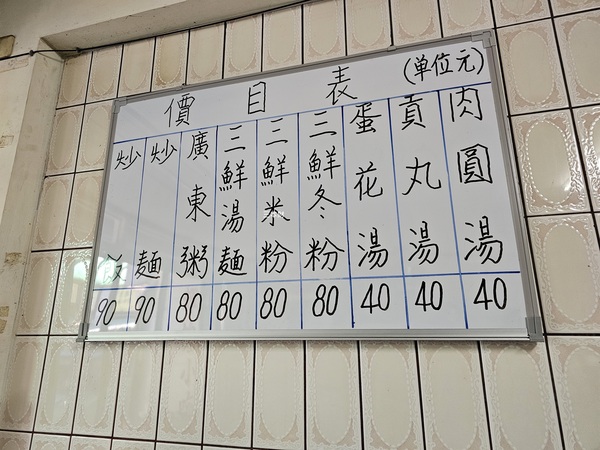 價目表 (单位元)
肉圓湯 40
貢丸湯 40
蛋花湯 40
三鮮冬粉 80
三鮮米粉 80
三鮮湯麵 80
廣東粥 80
炒麵 90
炒飯 90